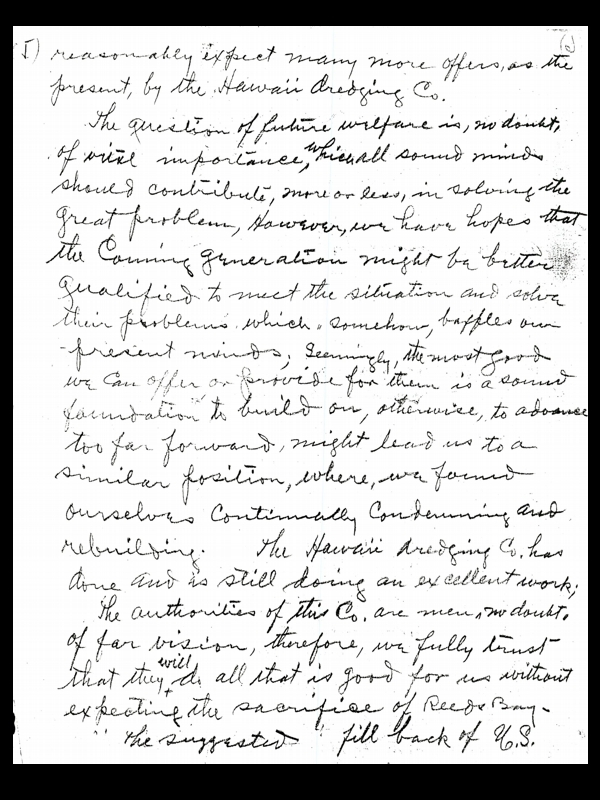 5) reasonably expect many more offers, as the
present, by the Hawaii dredging Co.
The question of future welfare is, no doubt,
of vital importance, which all sound minds
should contribute, more or less, in solving the
great problem, However, we have hopes that
the Coming generation might be better
qualified to meet the situation and solve
their problems which, somehow, baffles our
present minds; Seemingly, the most good
we can offer or provide for them is a sound
foundation to build on, otherwise, to advance
too far forward, might lead us to a
similar position, where, we found
ourselves Continually Condemning and
rebuilding. The Hawaii dredging Co. has
done and is still doing an excellent work;
The authorities of this Co. are men, no doubt,
of far vision, therefore, we fully trust
that they will do all that is good for us without
expecting the sacrifice of Reeds Bay-
" The suggested " fill back of U.S.